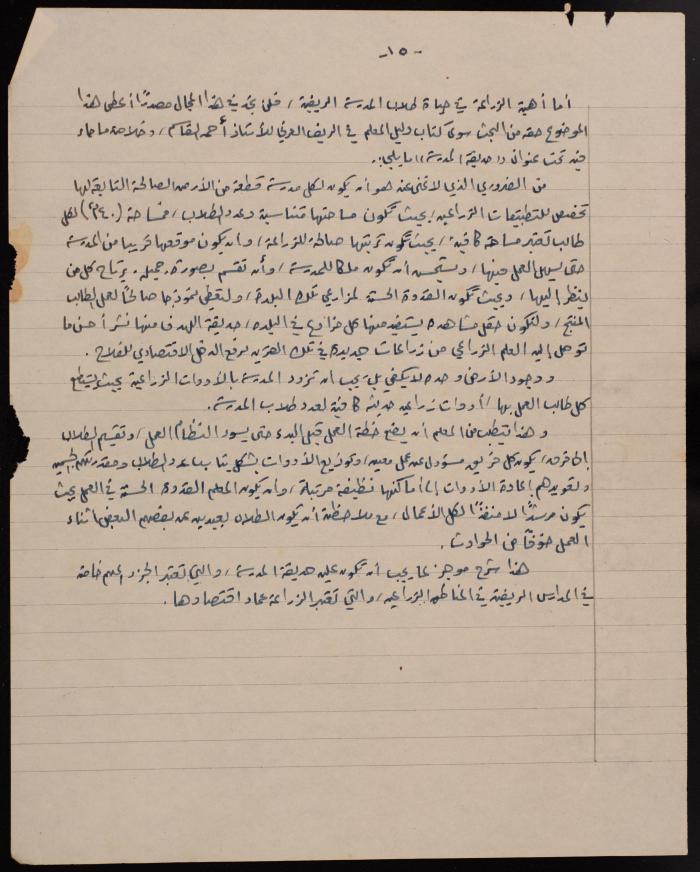 -١٥-
أما أهمية الزراعة في حياة طلاب المدرسة الريفية، فلم نجد في هذا المجال مصدرًا أعطى هذا
الموضوع حقه من البحث سوى كتاب دليل المعلم في الريف العربي للأستاذ أحمد القاسم، وخلاصة ما جاء
فيه تحت عنوان ((حديقة المدرسة)) ما يلي:-
من الضروري الذي لا غنى عنه هو أن يكون لكل مدرسة قطعة من الأرض الصالحة التابعة لها
تخصص للتطبيقات الزراعية، بحيث تكون مساحتها متناسبة وعدد الطلاب، فمساحة (٢٤٠) لكل
طالب تعتبر مساحة كافية، بحيث تكون تربتها صالحة للزراعة، وأن يكون موقعها قريبا من المدرسة
حتى يسهل العمل فيها، ويستحسن أن تكون ملكا للمدرسة، وأن تقسم بصورة جميلة. يرتاح كل من
ينظر إليها، وبحيث تكون القدوة الحسنة لمزارعي تلك البلدة، ولتعطي نموذجا صالحًا لعمل الطالب
المنتج، ولتكون حقل مشاهدة يستفيد منها كل مزارع في البلدة، حديقة الهدف منها نشر أحسن ما
توصل إليه العلم الزراعي من زراعات جديدة في تلك القرية لرفع الدخل الاقتصادي للفلاح.
ووجود الأرض وحده لا يكفي بل يجب أن تزود المدرسة بالأدوات الزراعية بحيث يستطيع
كل طالب العمل بها، أدوات زراعية حديثة كافية لعدد طلاب المدرسة.
وهذا يتطلب من المعلم أن يضع خطة العمل قبل البدء حتى يسود النظام العمل، وتقسيم الطلاب
إلى فرق، يكون كل فريق مسؤول عن عمل معين، وتوزيع الأدوات بشكل يناسب عدد الطلاب ومقدرتهم الجسمية
وتعويدهم إعادة الأدوات إلى أماكنها نظيفة مرتبة، وأن يكون المعلم القدوة الحسنة في العمل بحيث
يكون مرشدًا لا منفذًا لكل الأعمال، مع ملاحظة أن يكون الطلاب بعيدين عن بعضهم البعض أثناء
العمل خوفًا من الحوادث.
هذا شرح موجز لما يجب أن تكون عليه حديقة المدرسة، والتي تعتبر الجزء المهم خاصة
في المدارس الريفية في المناطق الزراعية، والتي تعتبر الزراعة عماد اقتصادها.